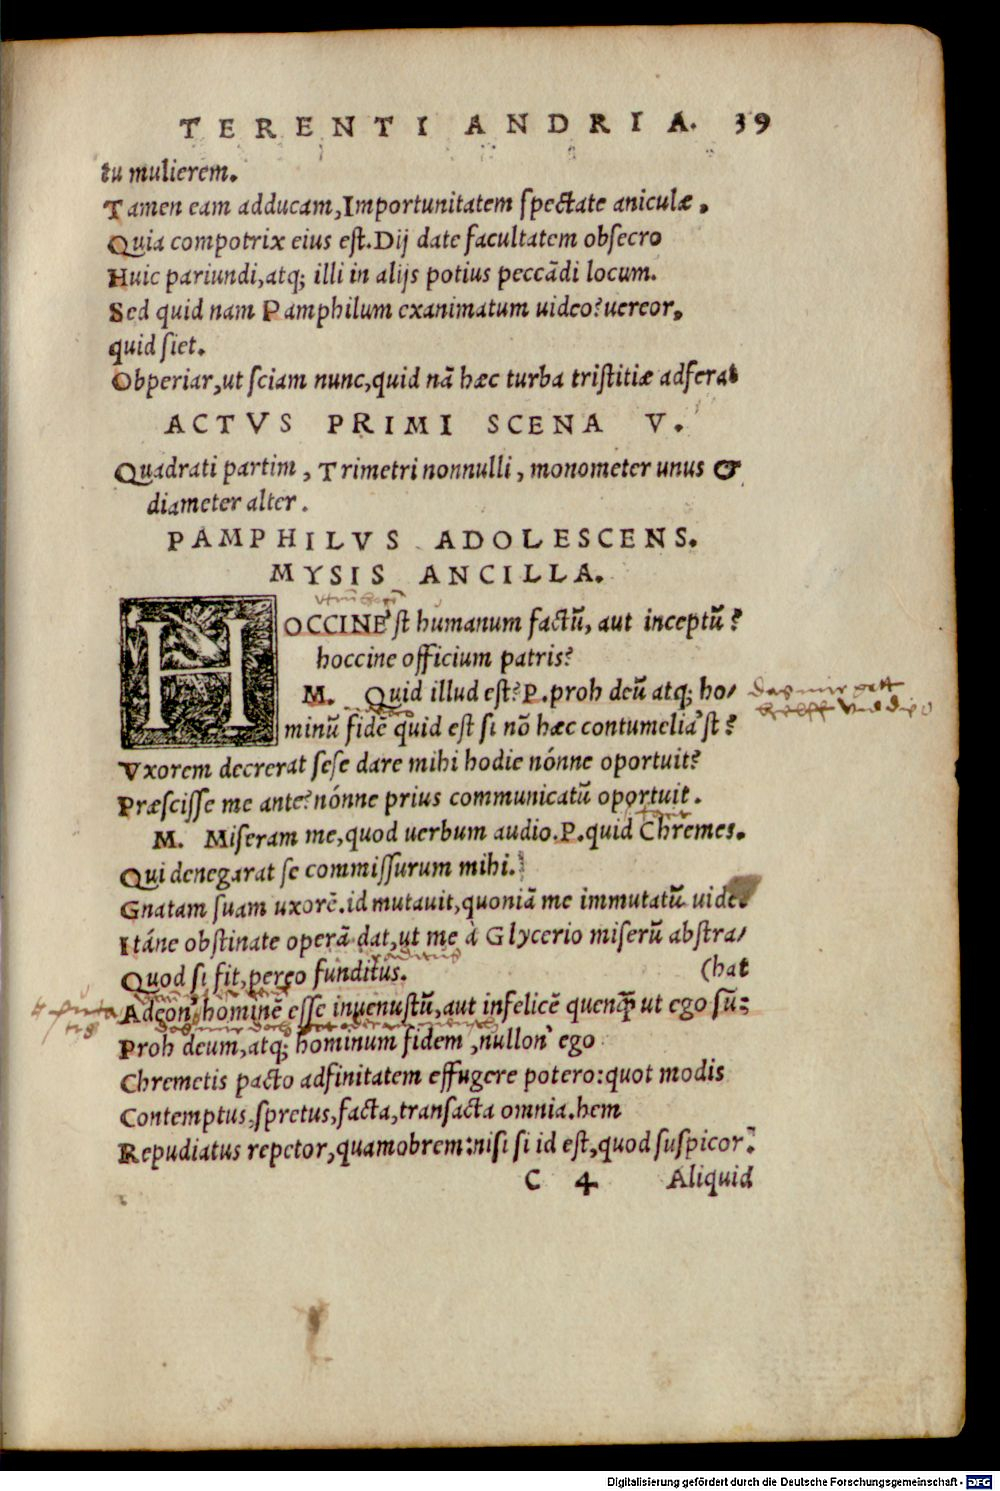 TERENTI ANDRIA. 39
tu mulierem.
Tamen eam adducam,Importunitatem spectate aniculæ.
Quia compotrix eius est.Dij date facultatem obsecro
Huic pariundi,atq; illi in alijs potius peccādi locum.
Sed quid nam Pamphilum exanimatum uideo?uereor,
quid siet.
Obperiar,ut sciam nunc,quid nā hæc turba tristitiæ adferat
ACTVS PRIMI SCENA V.
Quadrati partim, Trimetri nonnulli, monometer unus &
diameter alter.
PAMPHILVS ADOLESCENS.
MYSIS ANCILLA.
HOCCINE'st humanum factū, aut inceptū?
hoccine officium patris?
M. Quid illud est?P.proh deū atq; ho/
das mir gott
minū fidē quid est si nō hæc contumelia'st?
Vxorem decrerat sese dare mihi hodie nónne oportuit?
Præscisse me ante?nónne prius communicatū oportuit.
M. Miseram me,quod uerbum audio.P.quid Chremes.
Qui denegarat se commissurum mihi.
Gnatam suam uxorē.id mutauit,quoniā me immutatū uidet
Itáne obstinate operā dat,ut me à Glycerio miserū abstra/
Quod si fit,pereo funditus. (hat
Adeon' hominē esse inuenustū,aut infelicē quenq̄ ut ego sū:
Proh deum,atq; hominum fidem,nullon' ego
Chremetis pacto adfinitatem effugere potero:quot modis
Contemptus,spretus,facta,transacta omnia.hem
Repudiatus repetor,quamobrem:nisi si id est,quod suspicor.
C 4 Aliquid
Digitalisierung gefördert durch die Deutsche Forschungsgemeinschaft - DFG